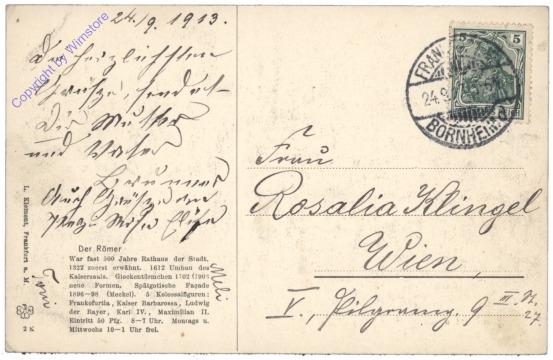 24/9. 1913.
Die herzlichsten
Grüße, sendet
Die Mutter
und Vater
Brunner
Auch Grüße von
Toni
Meli
Der Römer
War fast 500 Jahre Rathaus der Stadt.
1322 zuerst erwähnt. 1612 Umbau des
Kaisersaals. Glockentürmchen 1702 (1904
neue Formen, Spätgotische Façade
1896-98 (Meckel). 5 Kolossalfiguren:
Frankofurtia, Kaiser Barbarossa, Ludwig
der Bayer, Karl IV., Maximilian II.
Eintritt 50 Pfg. 8-7 Uhr. Montags u.
Mittwochs 10-1 Uhr frei.
L. Klement, Frankfurt a. M.
2 K
5
FRAN
24.9.
BORNHEIM
Frau
Rosalia Klingel
Wien,
V., Pilgramg. 9 III. St.
27.
Copyright by Wimstore